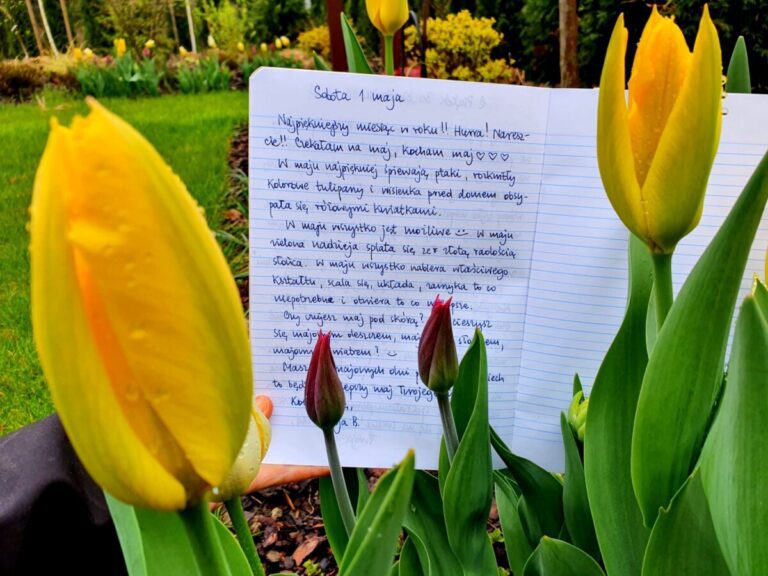 Sobota 1 maja
Najpiękniejszy miesiąc w roku!! Hurra! Naresz-
cie!! Czekałam na maj, kocham maj ♡♡♡
W maju najpiękniej śpiewają ptaki, rozkwitły
kolorowe tulipany i wisienka przed domem obsy-
pała się różowymi kwiatkami.
W maju wszystko jest możliwe W maju
zielona nadzieja splata się ze złotą radością
słońca. W maju wszystko nabiera właściwego
kształtu, scala się, układa, zamyka to co
niepotrzebne i otwiera to co
Czy czujesz maj pod skórą?
się majowym deszczem,
majowym wiatrem!
majowych dni
to
B.